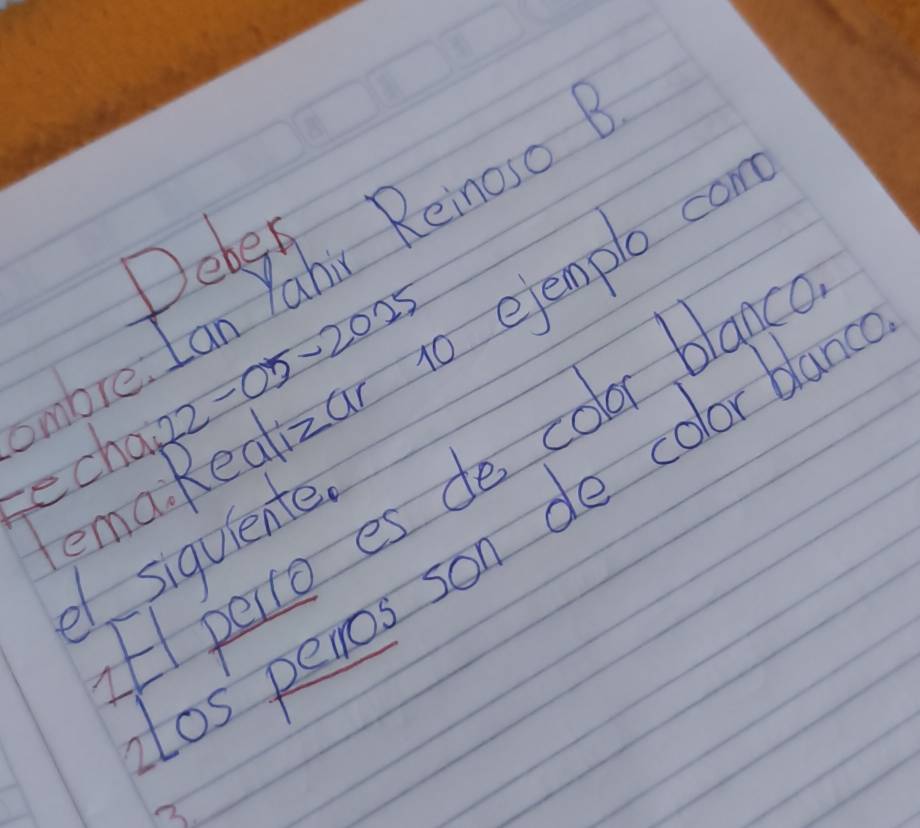 Deber
ombre: Ian Yahir Reinoso B.
Fecha: 22-05-2025
Tema: Realizar 10 ejemplo como
el siguiente.
1 El perro es de color blanco.
2 Los perros son de color blanco.
3.